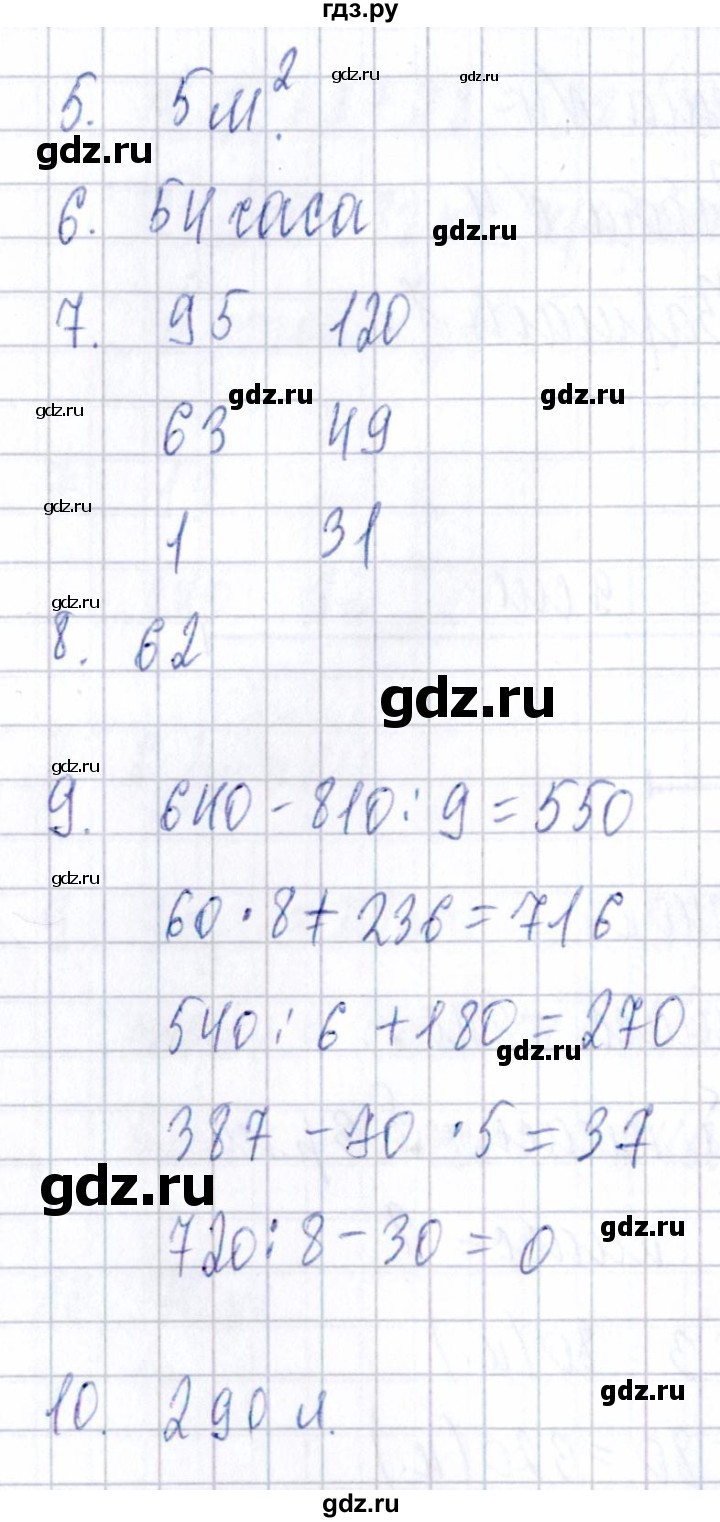 гдз.ру
gdz.ru gdz.ru
5. 5 м².
gdz.ru
6. 54 часа
gdz.ru
7. 95 120
gdz.ru gdz.ru
gdz.ru
63 49
gdz.ru
1 31
gdz.ru
8. 62
gdz.ru
gdz.ru
9. 640 - 810 : 9 = 550
gdz.ru
60 · 8 + 236 = 716
540 : 6 + 180 = 270
gdz.ru
387 - 70 · 5 = 37
gdz.ru
gdz.ru
720 : 8 - 30 = 0
gdz.ru
10. 290 л.
gdz.ru